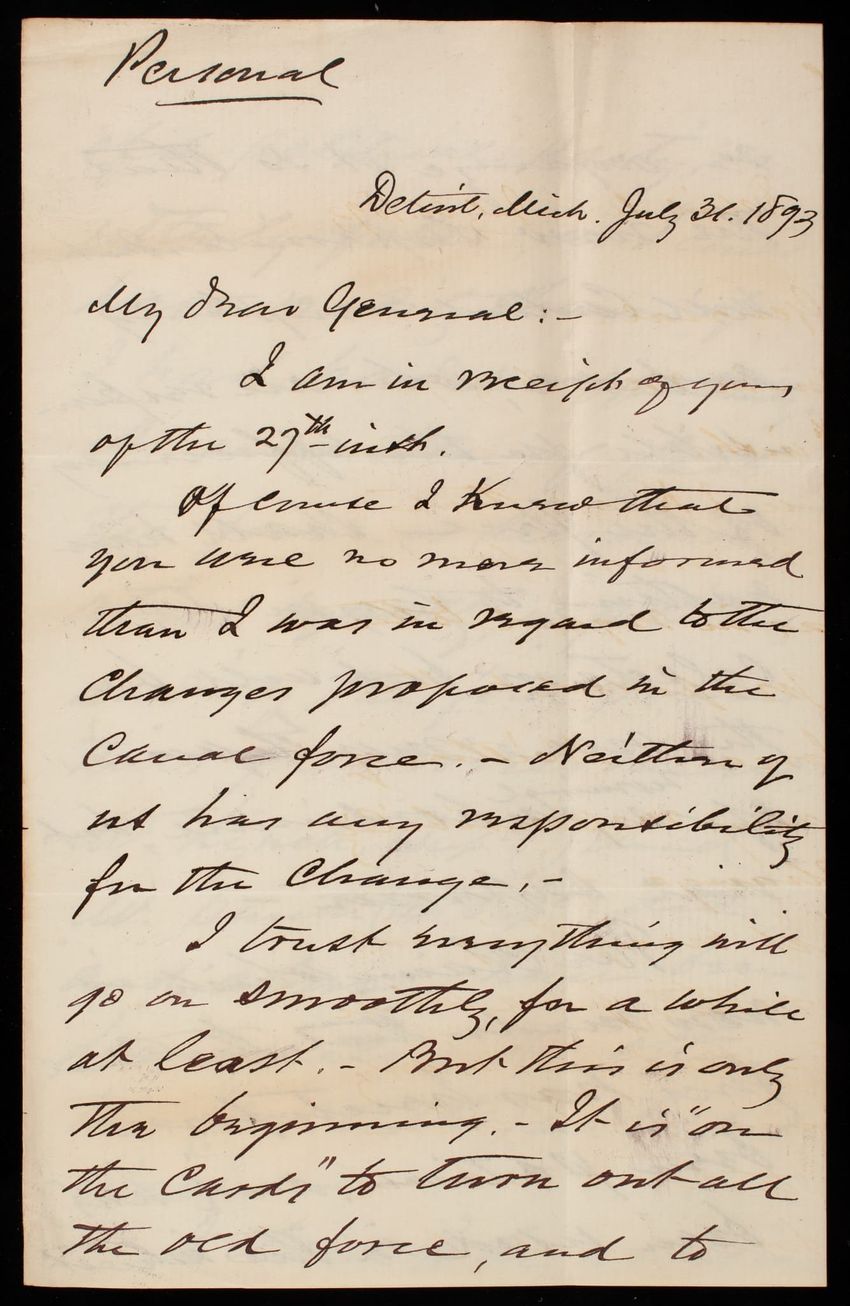 Personal
Detroit, Mich. July 31. 1893
My Dear General:-
I am in receipt of yours
of the 27th inst.
Of course I knew that
you were no more informed
than I was in regard to the
changes proposed in the
Canal force. - Neither of
us has any responsibility
for the change. -
I trust everything will
go on smoothly, for a while
at least. - But this is only
the beginning. - It is "on
the cards" to turn out all
the old force, and to